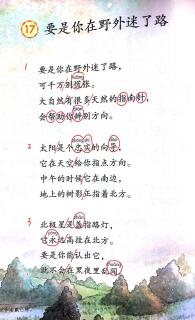 17 要是你在野外迷了路
1
要是你在野外迷了路，
可千万别慌张。
大自然有很多天然的指南针，
会帮助你辨别方向。
2
太阳是个忠实的向导，
它在天空给你指点方向。
中午的时候它在南边，
地上的树影正指着北方。
3
北极星是盏指路灯，
它永远高挂在北方。
要是你能认出它，
就不会在黑夜里乱闯。